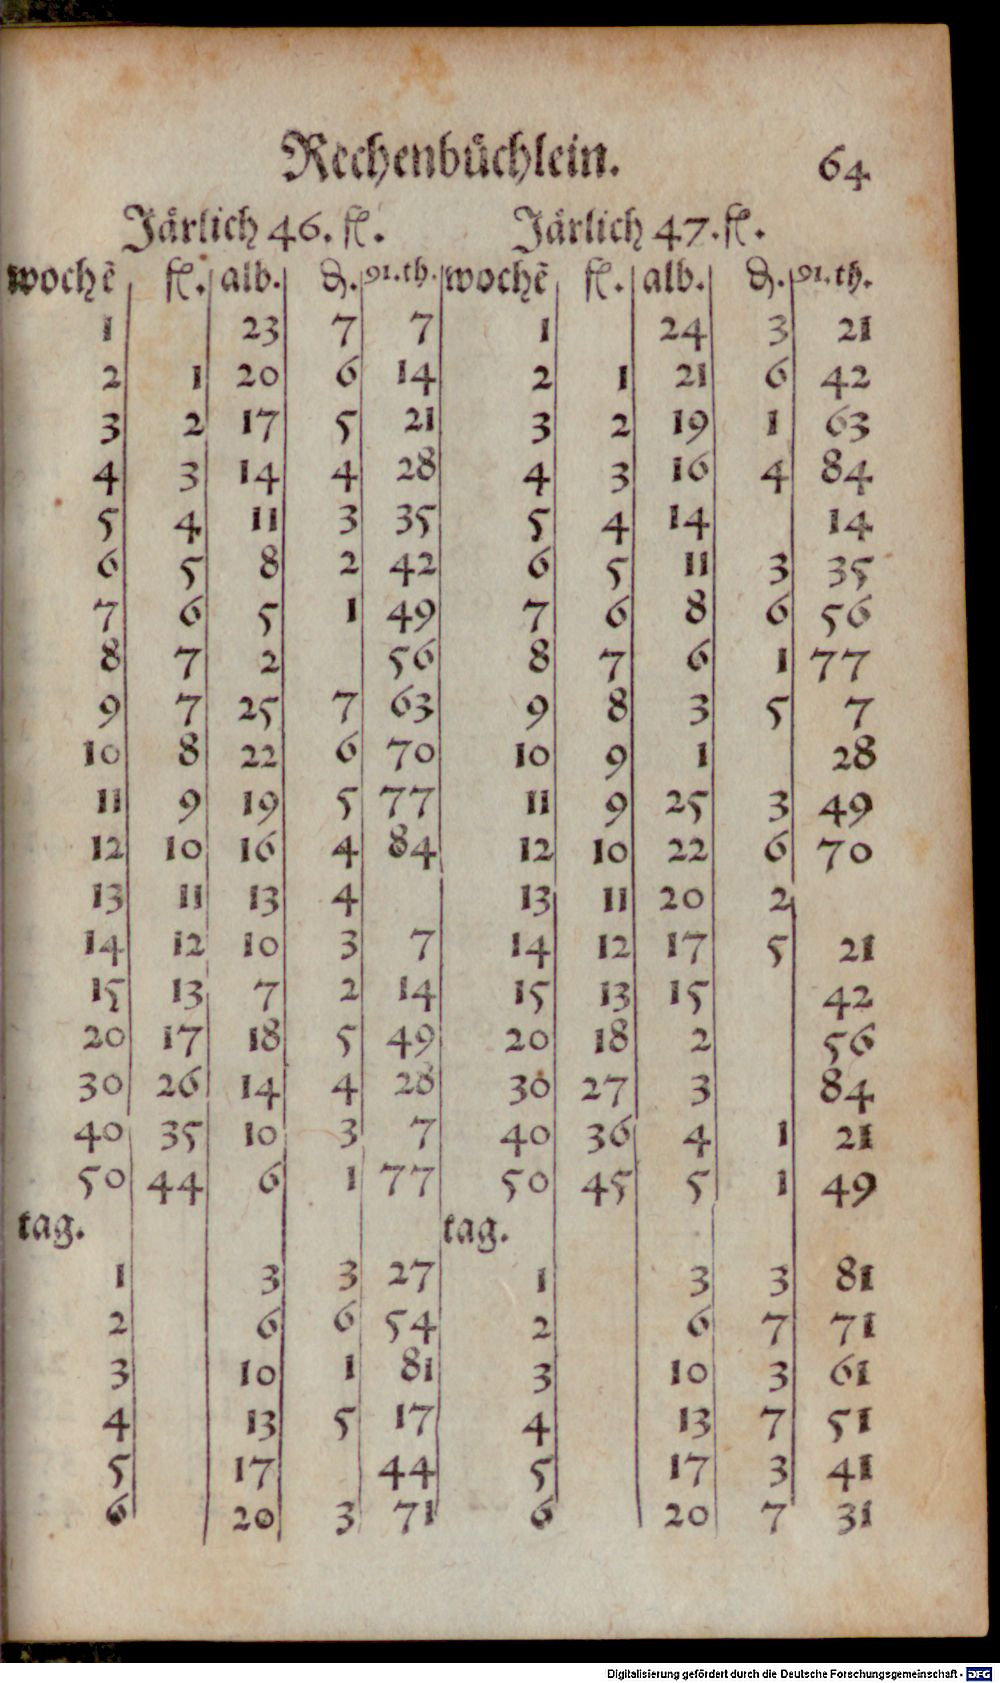 Rechenbüchlein. 64
Järlich 46. fl. Järlich 47. fl.
wochẽ fl. alb. ₰. 91.th. wochẽ fl. alb. ₰. 91.th.
1 23 7 7 1 24 3 21
2 1 20 6 14 2 1 21 6 42
3 2 17 5 21 3 2 19 1 63
4 3 14 4 28 4 3 16 4 84
5 4 11 3 35 5 4 14 14
6 5 8 2 42 6 5 11 3 35
7 6 5 1 49 7 6 8 6 56
8 7 2 56 8 7 6 1 77
9 7 25 7 63 9 8 3 5 7
10 8 22 6 70 10 9 1 28
11 9 19 5 77 11 9 25 3 49
12 10 16 4 84 12 10 22 6 70
13 11 13 4 13 11 20 2
14 12 10 3 7 14 12 17 5 21
15 13 7 2 14 15 13 15 42
20 17 18 5 49 20 18 2 56
30 26 14 4 28 30 27 3 84
40 35 10 3 7 40 36 4 1 21
50 44 6 1 77 50 45 5 1 49
tag. tag.
1 3 3 27 1 3 3 81
2 6 6 54 2 6 7 71
3 10 1 81 3 10 3 61
4 13 5 17 4 13 7 51
5 17 44 5 17 3 41
6 20 3 71 6 20 7 31
Digitalisierung gefördert durch die Deutsche Forschungsgemeinschaft - DFG